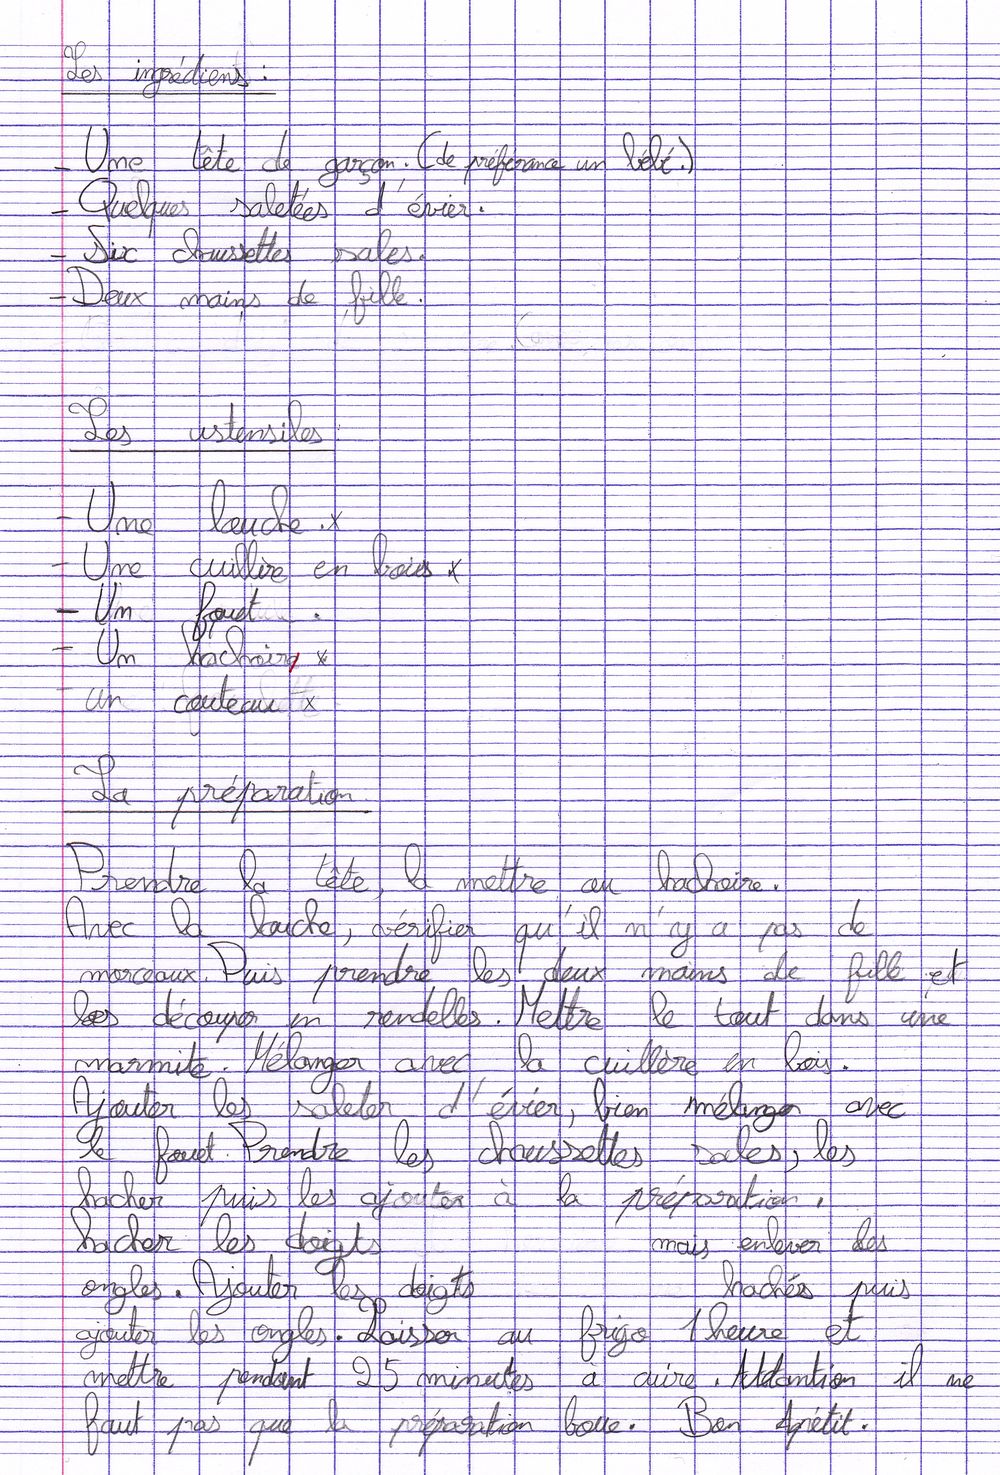 Les ingrédiens :
- Une tête de garçon. (de préférance un bébé.)
- Quelques saletées d'évier.
- Six chaussettes sales.
- Deux mains de fille.
Les ustensiles
- Une louche. x
- Une cuillire en bois x
- Un fouet .
- Un hachoir x
- un couteau x
La préparation
Prendre la tête, la mettre au hachoire.
Avec la louche, vérifier qu'il n'y a pas de
morceaux. Puis prendre les deux mains de fille et
les découper en rendelles. Mettre le tout dans une
marmite. Mélanger avec la cuillère en bois.
Ajouter les saleter d'évier, bien mélanger avec
le fouet. Prendre les chaussettes sales, les
hacher puis les ajouter à la préparation.
hacher les doigts mais enlever les
ongles. Ajouter les doigts hachés puis
ajouter les ongles. Laisser au frigo 1 heure et
mettre pendant 25 minutes à cuire. Attantion il ne
faut pas que la préparation boue. Bon Apétit.